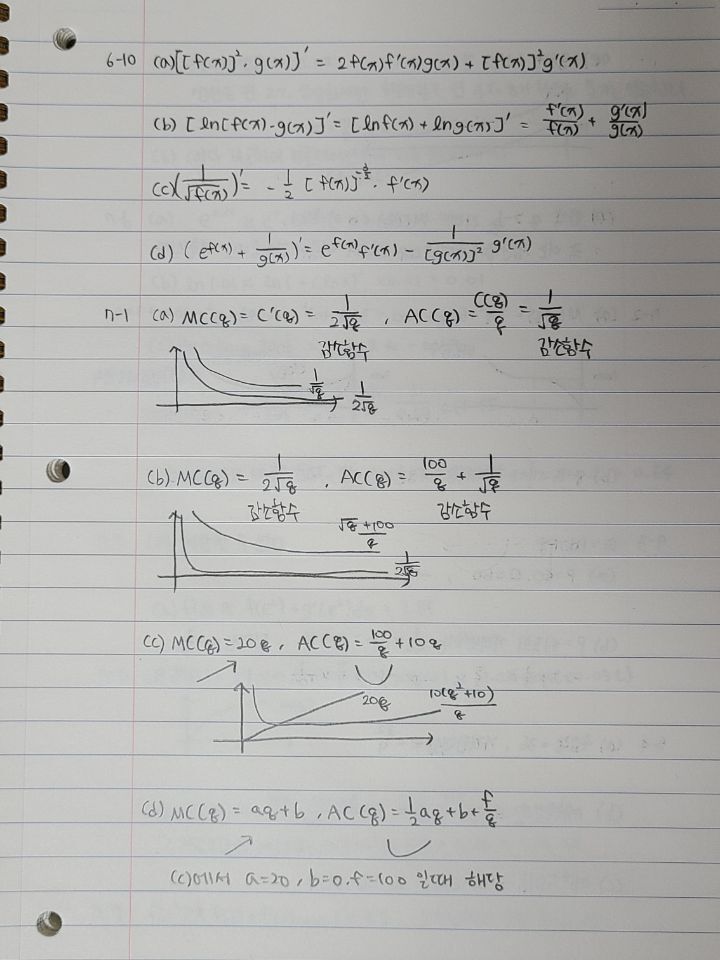 6-10 (a) [[f(x)]²·g(x)]' = 2f(x)f'(x)g(x) + [f(x)]²g'(x)
(b) [ln[f(x)-g(x)]' = [lnf(x) + lng(x)]' = f'(x)/f(x) + g'(x)/g(x)
(c) (1/√f(x))' = -1/2 [f(x)]^(-3/2) · f'(x)
(d) (e^f(x) + 1/g(x))' = e^f(x) f'(x) - 1/[g(x)]² g'(x)
7-1 (a) MC(q) = C'(q) = 1/2√q , AC(q) = C(q)/q = 1/√q
감소함수 감소함수
1/√q
1/2√q
(b) MC(q) = 1/2√q , AC(q) = 100/q + 1/√q
감소함수 감소함수
√q+100/q
1/2√q
(c) MC(q) = 20q , AC(q) = 100/q + 10q
20q 10(q²+10)/q
(d) MC(q) = aq+b , AC(q) = 1/2 aq+b+ f/q
(c)에서 a=20, b=0, f=100 일때 해당